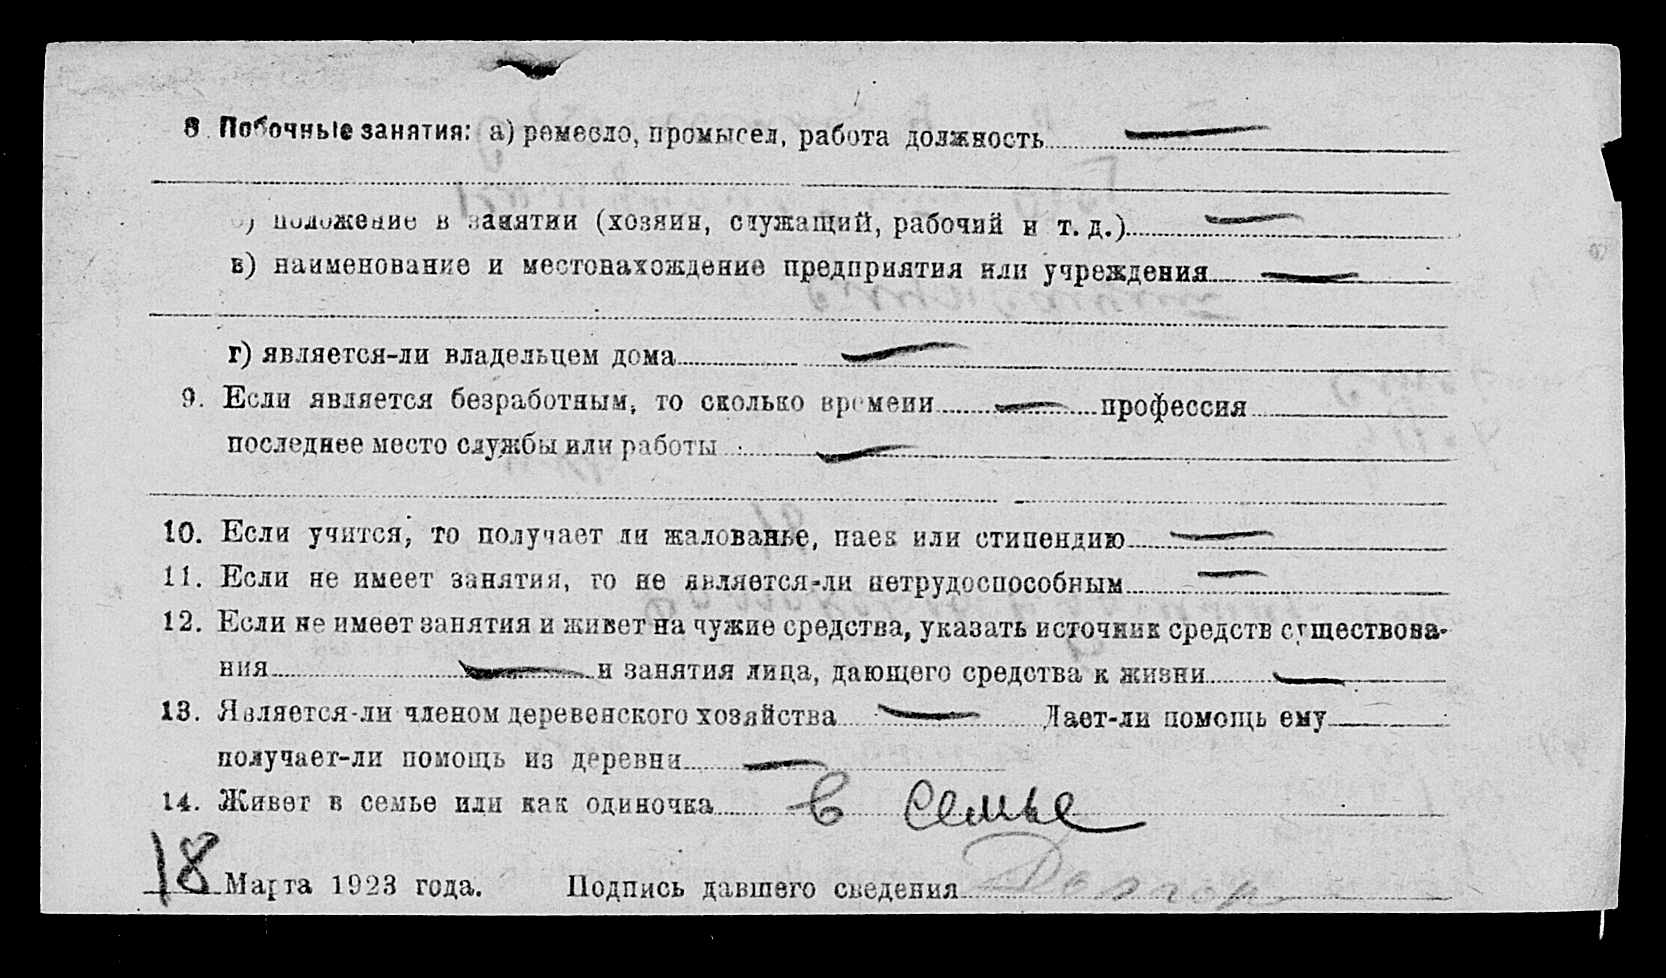 8. Побочные занятия: а) ремесло, промысел, работа должность —
б) положение в занятии (хозяин, служащий, рабочий и т. д.) —
в) наименование и местонахождение предприятия или учреждения —
г) является-ли владельцем дома —
9. Если является безработным, то сколько времени — профессия
последнее место службы или работы —
10. Если учится, то получает ли жалованье, паек или стипендию —
11. Если не имеет занятия, то не является-ли нетрудоспособным —
12. Если не имеет занятия и живет на чужие средства, указать источник средств существова-
ния — и занятия лица, дающего средства к жизни —
13. Является-ли членом деревенского хозяйства — Дает-ли помощь ему
получает-ли помощь из деревни —
14. Живет в семье или как одиночка в семье
18 Марта 1923 года. Подпись давшего сведения